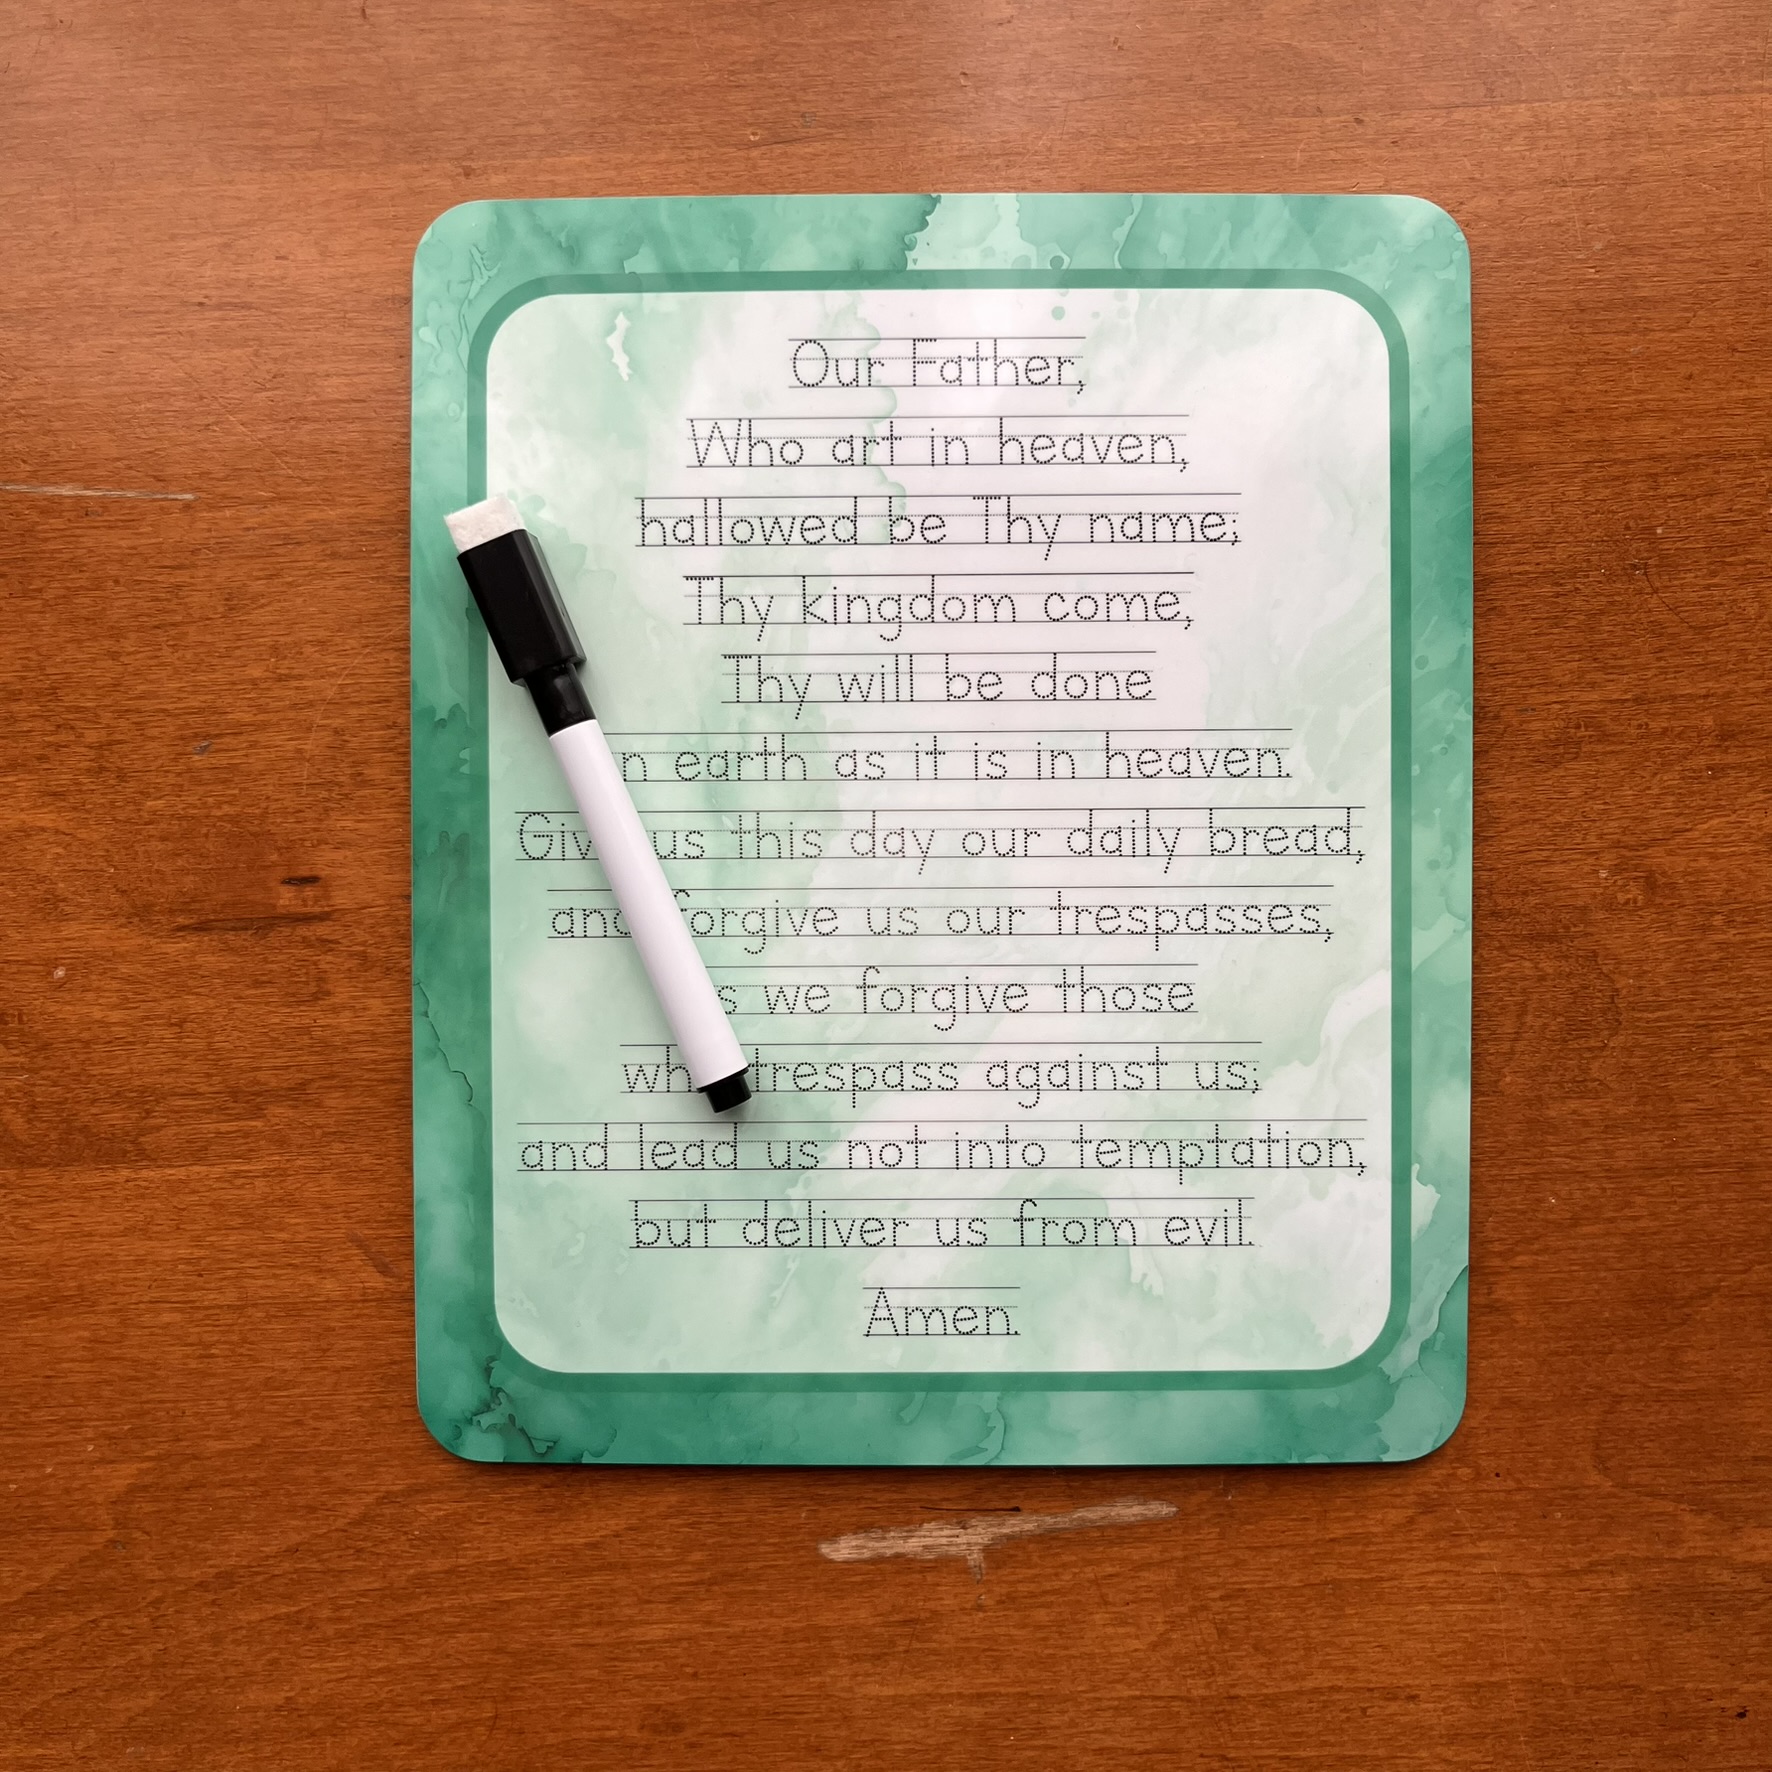 Our Father,
Who art in heaven,
hallowed be Thy name;
Thy kingdom come,
Thy will be done
earth as it is in heaven.
us this day our daily bread,
forgive us our trespasses,
we forgive those
trespass against us;
and lead us not into temptation,
but deliver us from evil.
Amen.